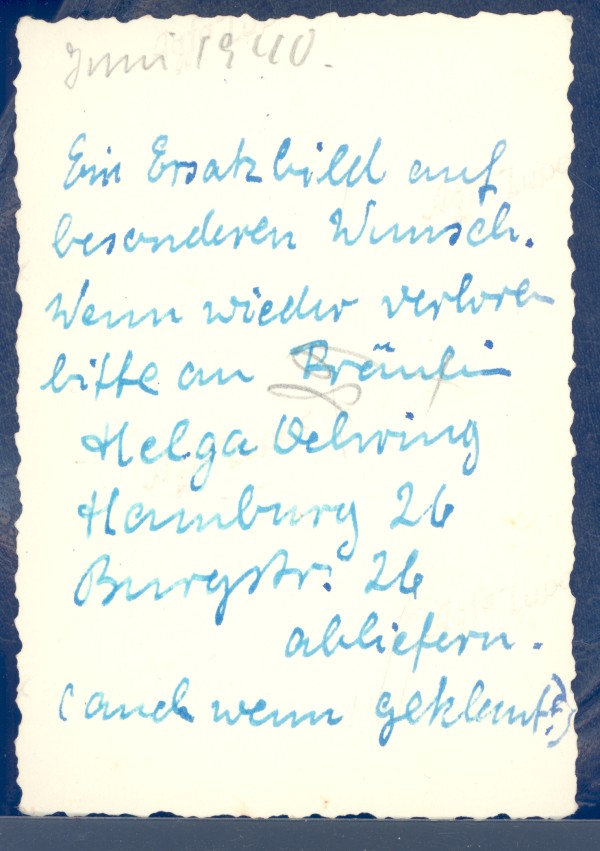 Juni 1940.
Ein Ersatzbild auf
besonderen Wunsch.
Wenn wieder verloren
bitte an Fräulein
Helga Oehring
Hamburg 26
Burgstr. 26
abliefern.
(auch wenn geklaut!)